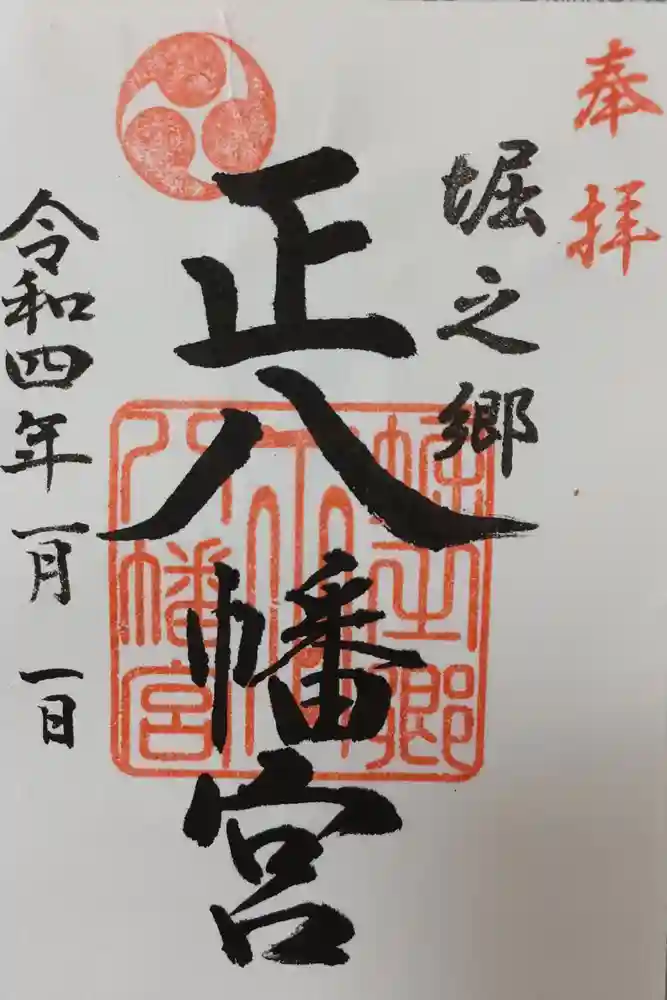 奉拝
堀之郷
正八幡宮
堀之郷
正
八幡宮
令和四年一月一日